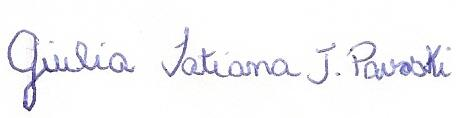 Giulia Tatiana J. Pavoski